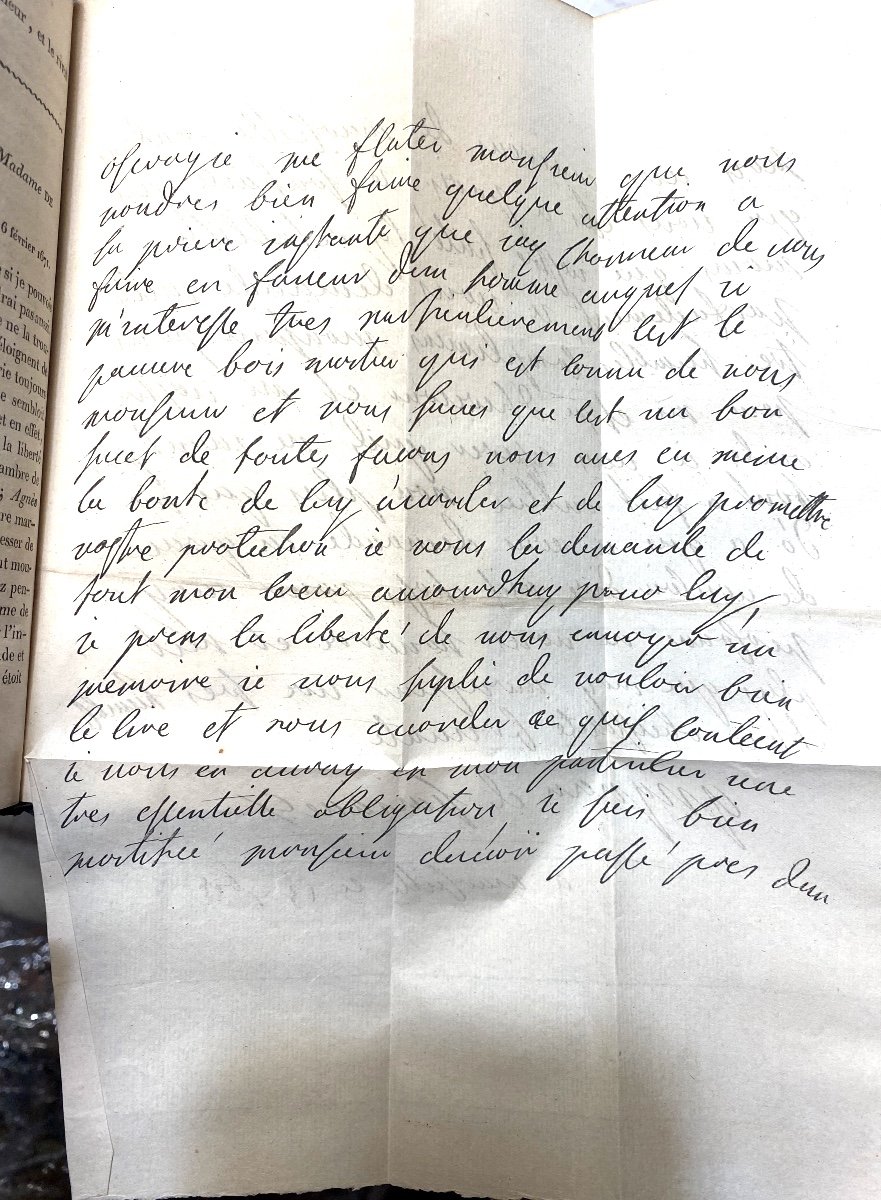 ieur, et le
Madame DE
6 février 1671.
si je pouvois
rai pas
ne la trou-
éloignent de
rie toujours
e sembloit
et en effet,
la liberté
ambre de
Agnès
re mar-
esser de
nt mou-
z pen-
me de
l'in-
de et
étoit
oserayie me flater monsieur que vous
voudres bien faire quelque attention a
la priere instante que iay lhonneur de vous
faire en faueur dun homme auquel ie
m'interesse tres particulierement cest le
pauure bois mortier qui est connu de vous
monsieur et vous saues que cest un bon
suiet de toutes facons vous aues eu meme
la bonte de luy acorder et de luy promettre
vostre protection ie vous la demande de
tout mon coeur auiourdhuy pour luy,
ie prens la liberté de vous enuoyer un
memoire ie vous suplie de vouloir bien
le lire et vous acorder ce quil contient
ie vous en auray en mon particulier une
tres essentielle obligation, ie suis bien
mortifieé monsieur dauoir passé pres dun